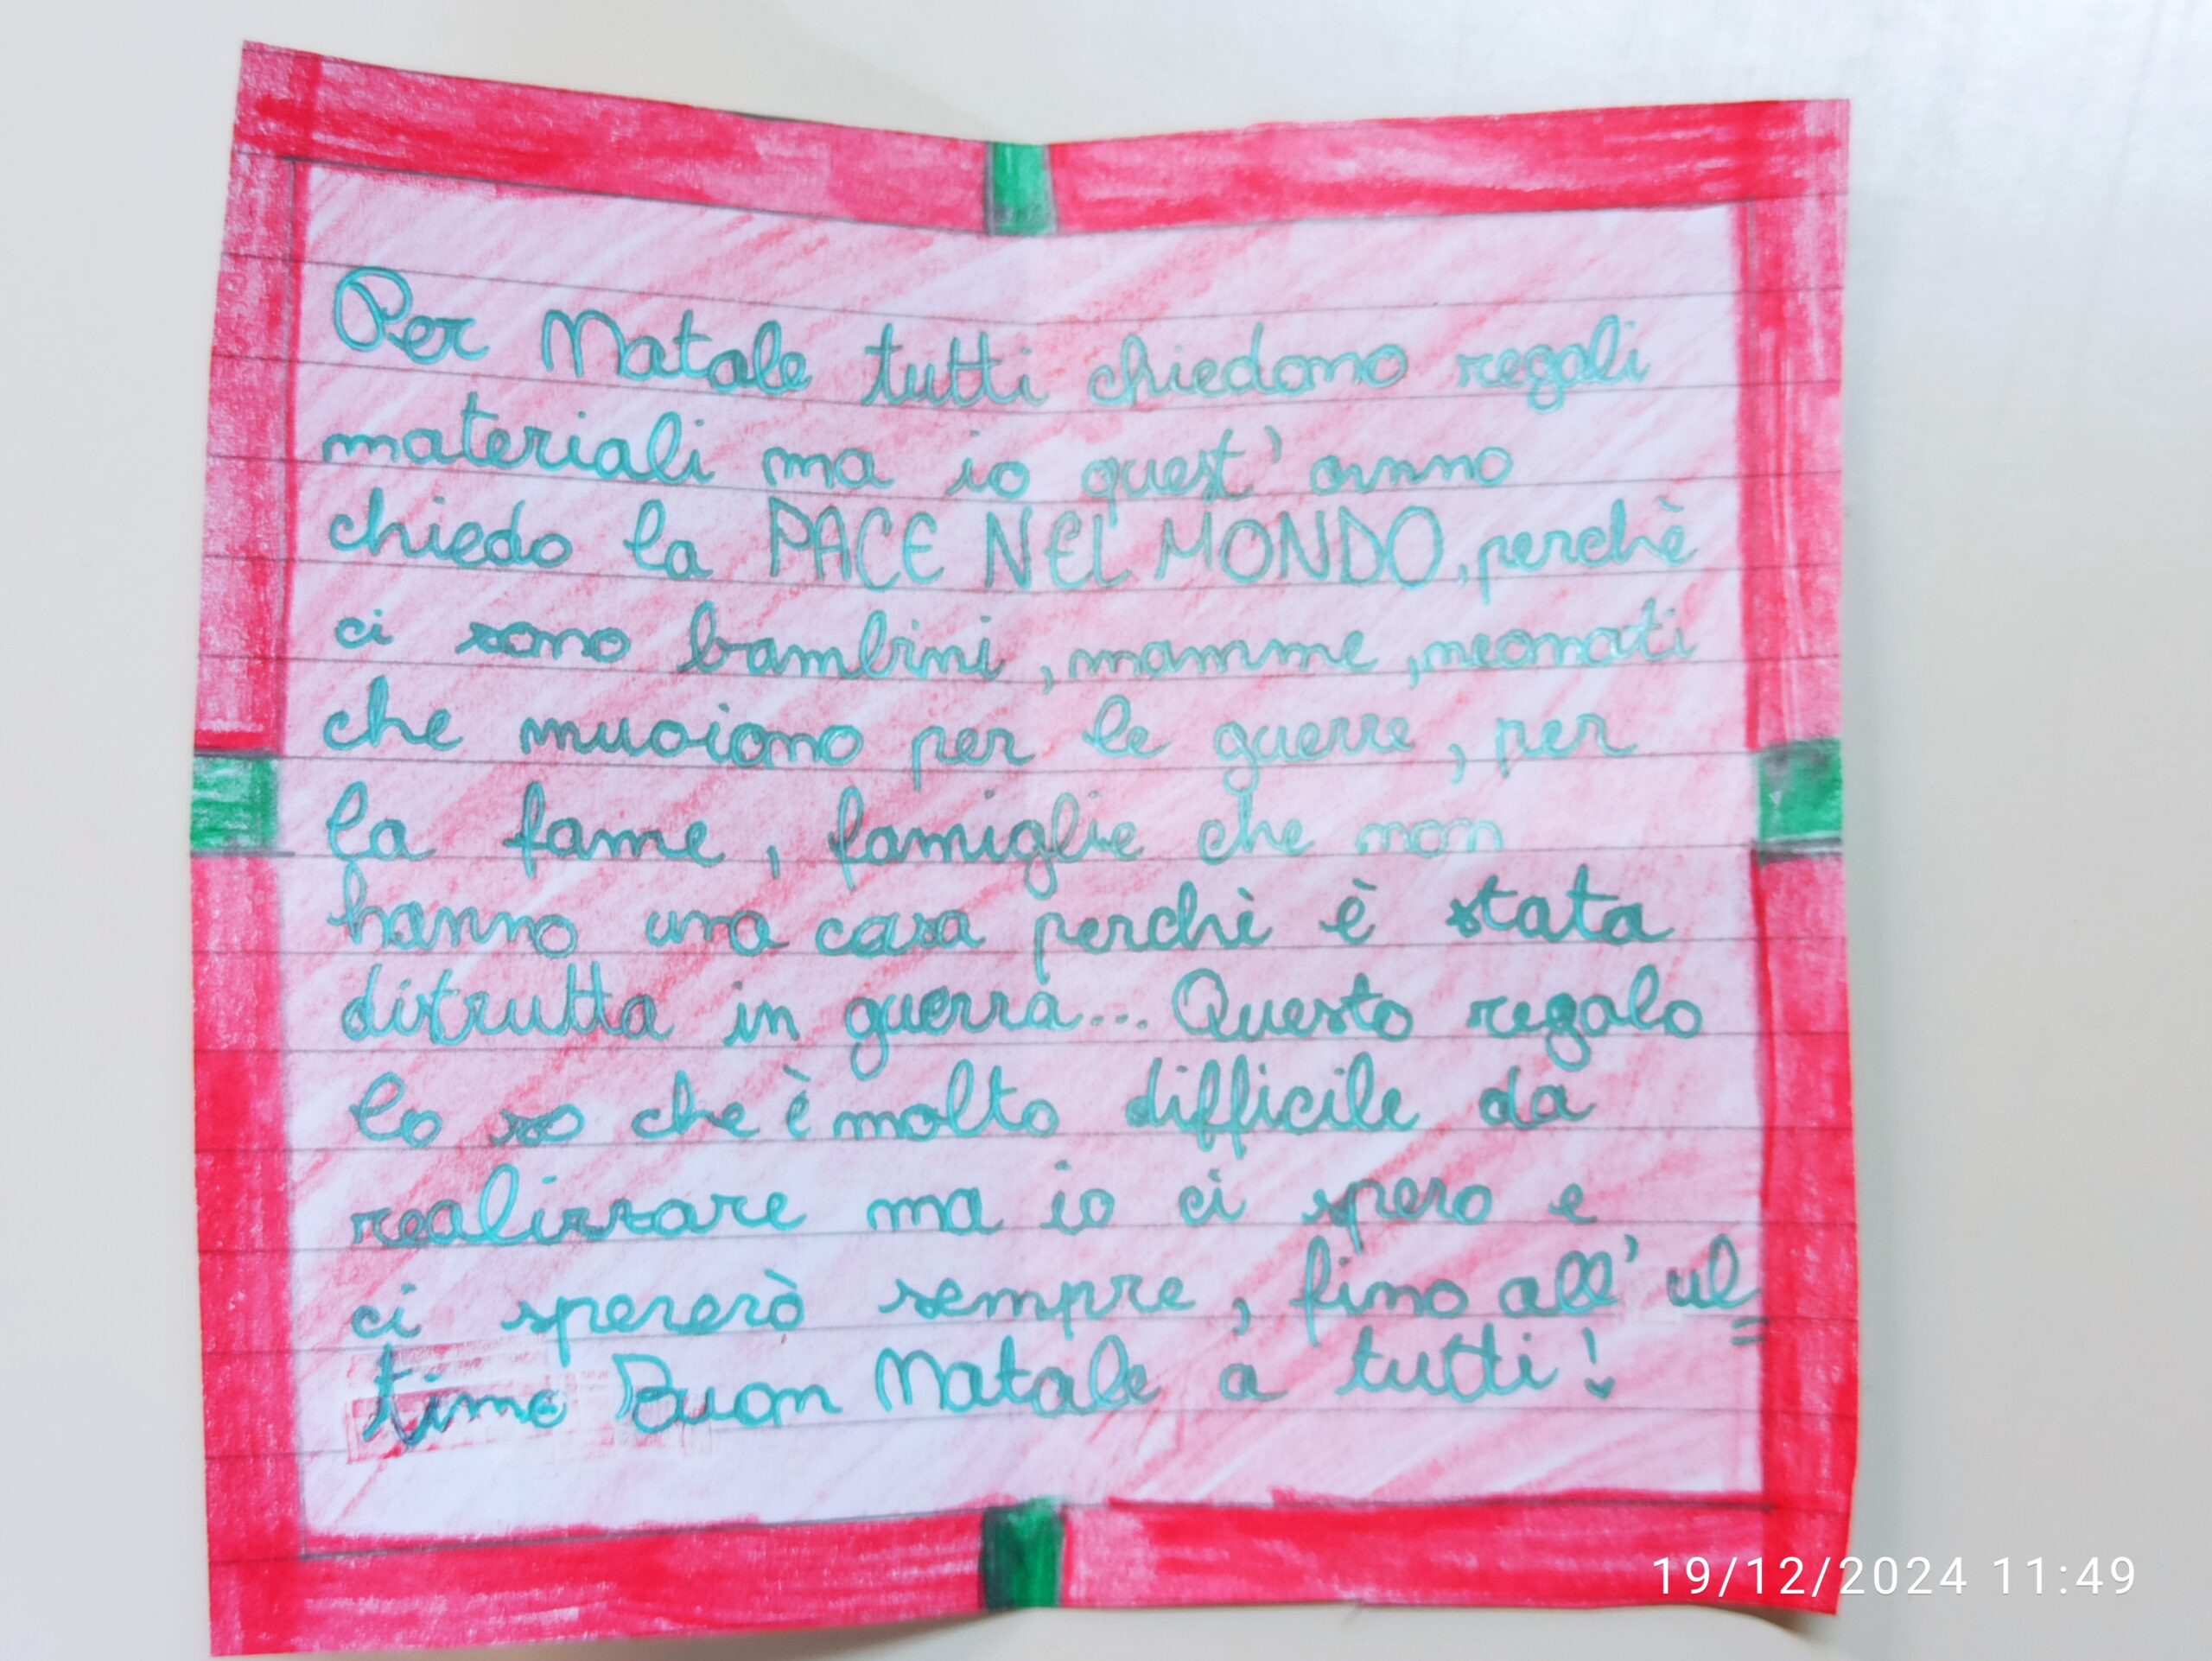 Per Natale tutti chiedono regali
materiali ma io quest'anno
chiedo la PACE NEL MONDO, perchè
ci sono bambini, mamme, neonati
che muoiono per le guerre, per
la fame, famiglie che non
hanno una casa perchè è stata
distrutta in guerra... Questo regalo
lo so che è molto difficile da
realizzare ma io ci spero e
ci spererò sempre, fino all'ul=
timo Buon Natale a tutti!
19/12/2024 11:49